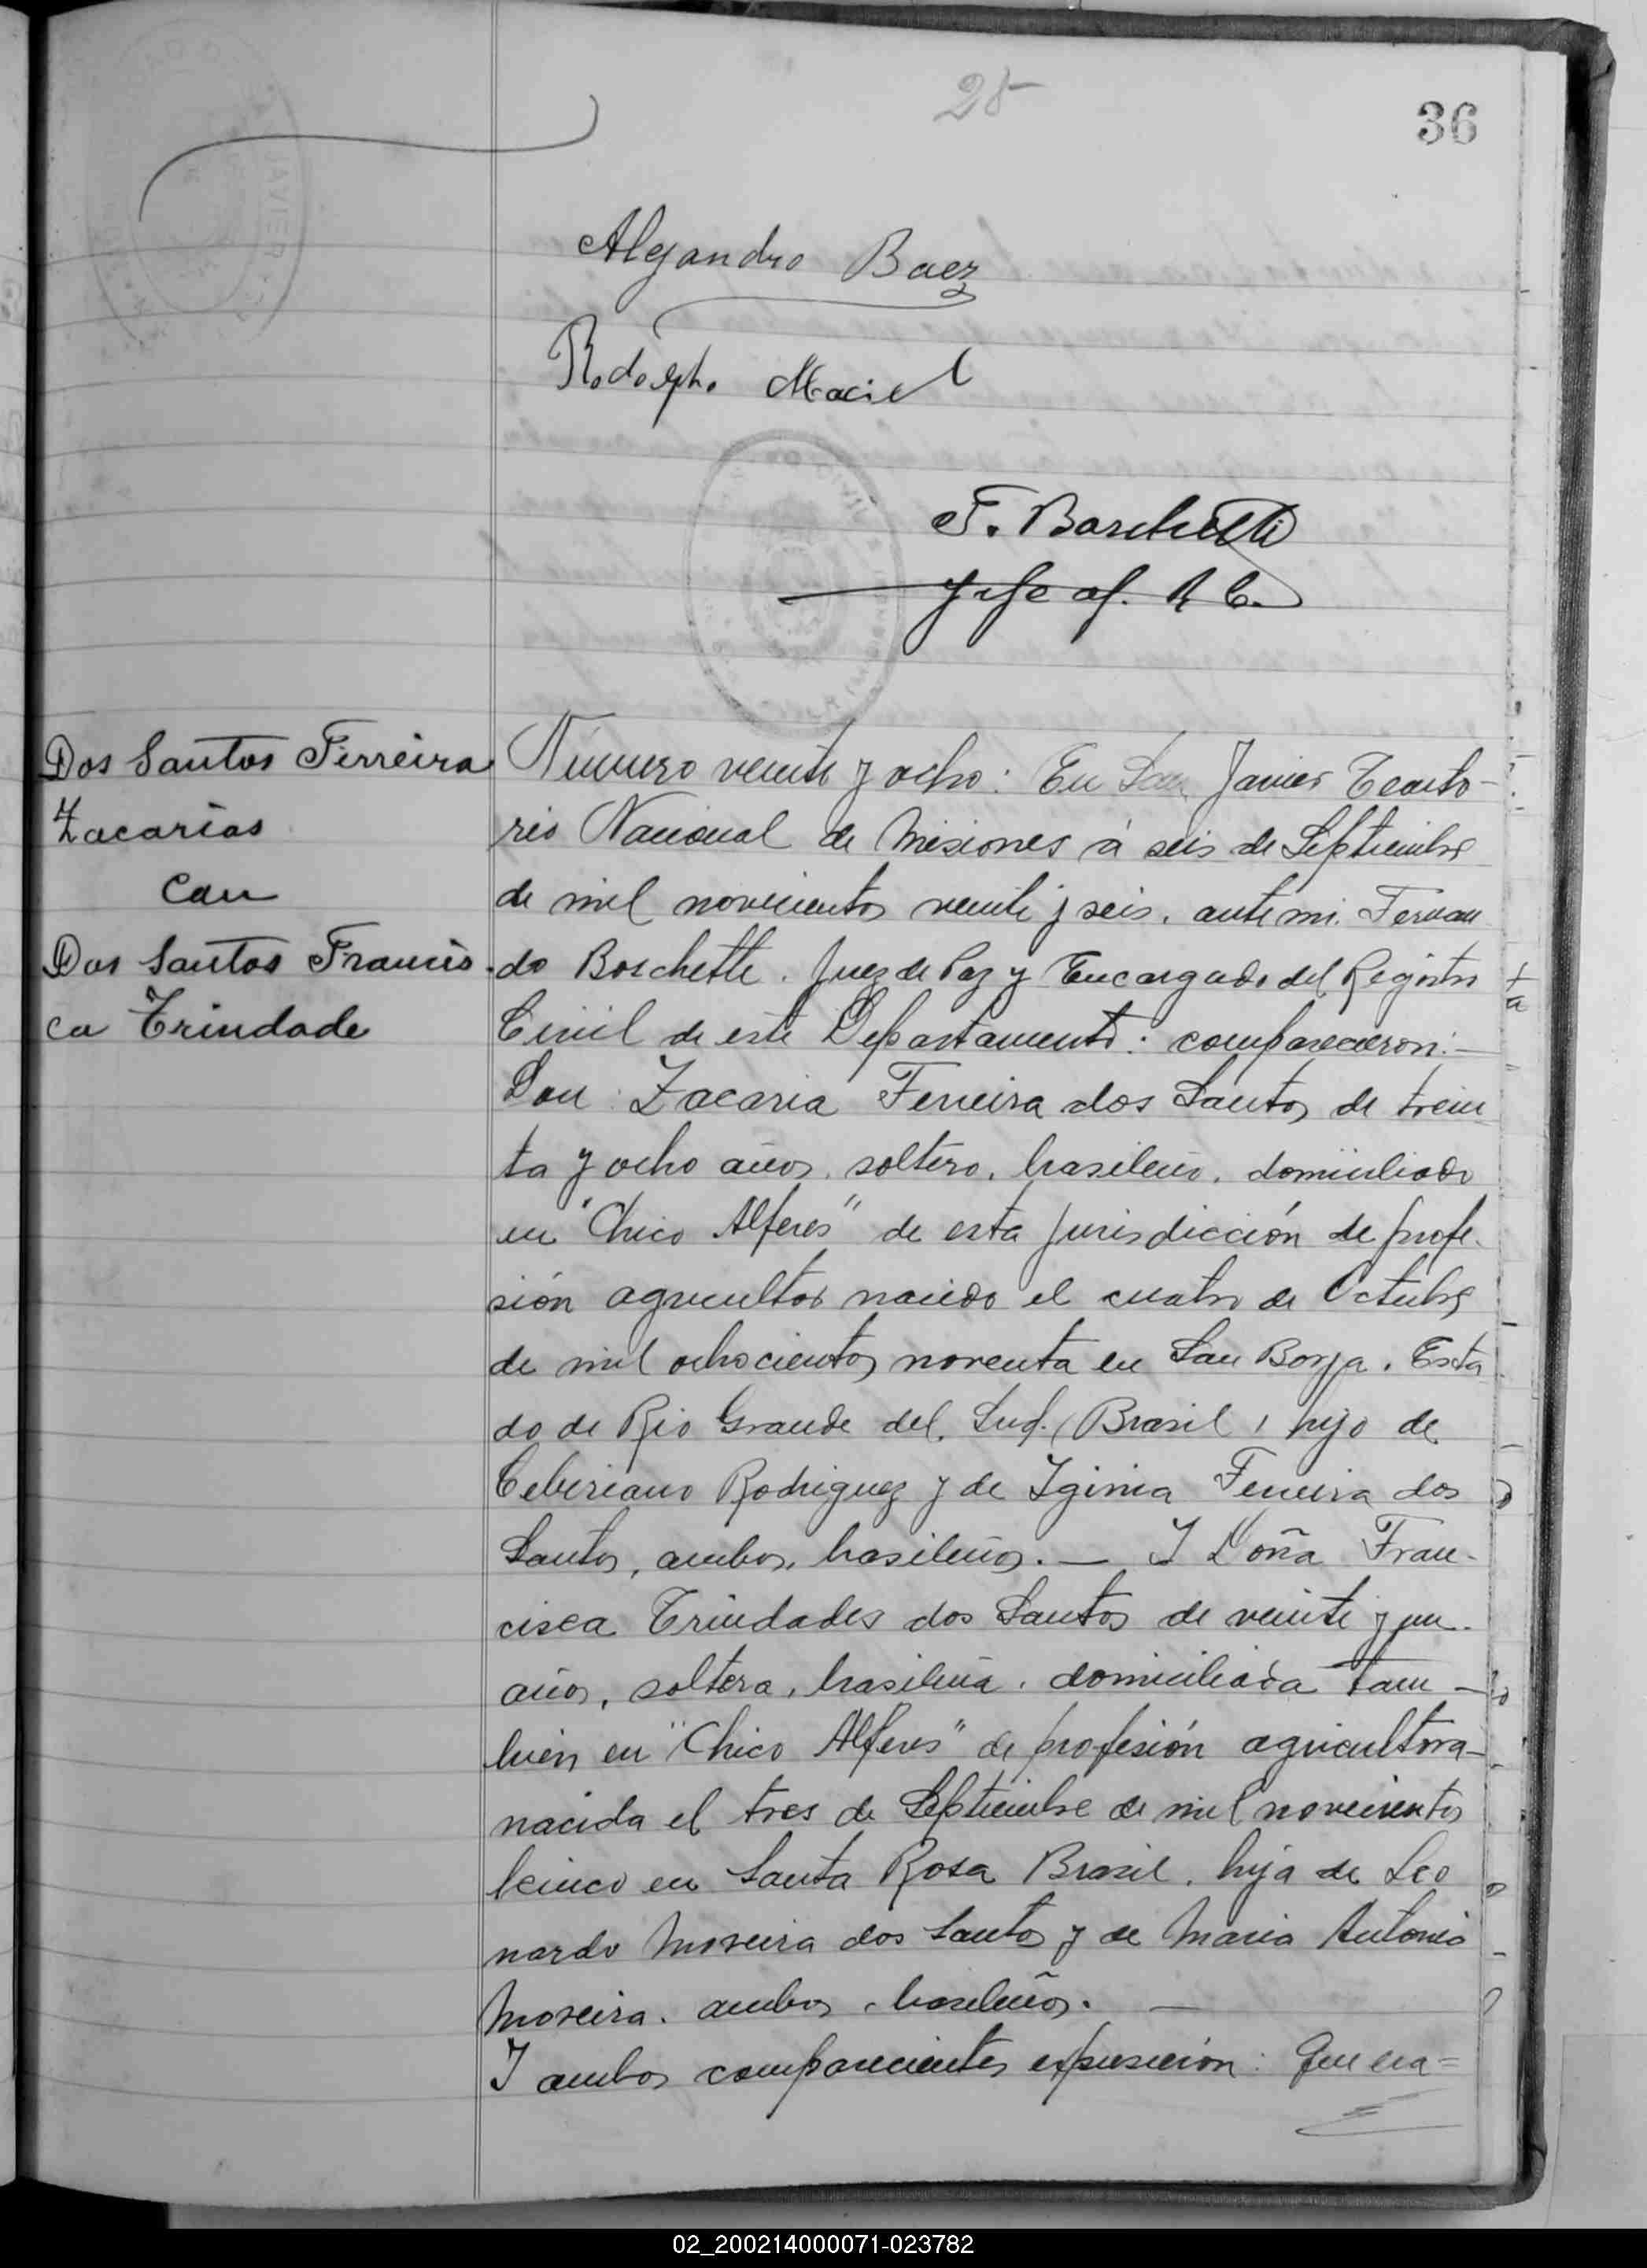 25
36
Alejandro Baez
Rodolpho Maciel
F. Boschetti
Jefe of. R C.
Dos Santos Ferreira
Zacarias
con
Dos Santos Francis
ca Trindade
Número veinte y ocho: En San Javier Territo-
rio Nacional de Misiones á seis de Septiembre
de mil novecientos veinte y seis. ante mi. Fernan
do Boschetti. Juez de Paz y Encargado del Registro
Civil de este Departamento: comparecieron:—
Don Zacaria Ferreira dos Santos de trein
ta y ocho años. soltero. brasileño. domiciliado
en "Chico Alferes" de esta jurisdicción de profe-
sión agricultor nacido el cuatro de Octubre
de mil ochocientos noventa en San Borja. Esta
do de Rio Grande del Sud. (Brasil) hijo de
Ceberiano Rodriguez y de Iginia Ferreira dos
Santos, ambos, brasileños. — I Doña Fran-
cisca Trindades dos Santos de veinte y un
años, soltera, brasileña. domiciliada tam-
bien en "Chico Alferes" de profesión agricultora-
nacida el tres de Septiembre de mil novecientos
cinco en Santa Rosa Brasil. hija de Leo
nardo Moreira dos Santos y de Maria Antonia
Moreira. ambos brasileños. —
I ambos comparecientes expusieron: Que era=
02_200214000071-023782